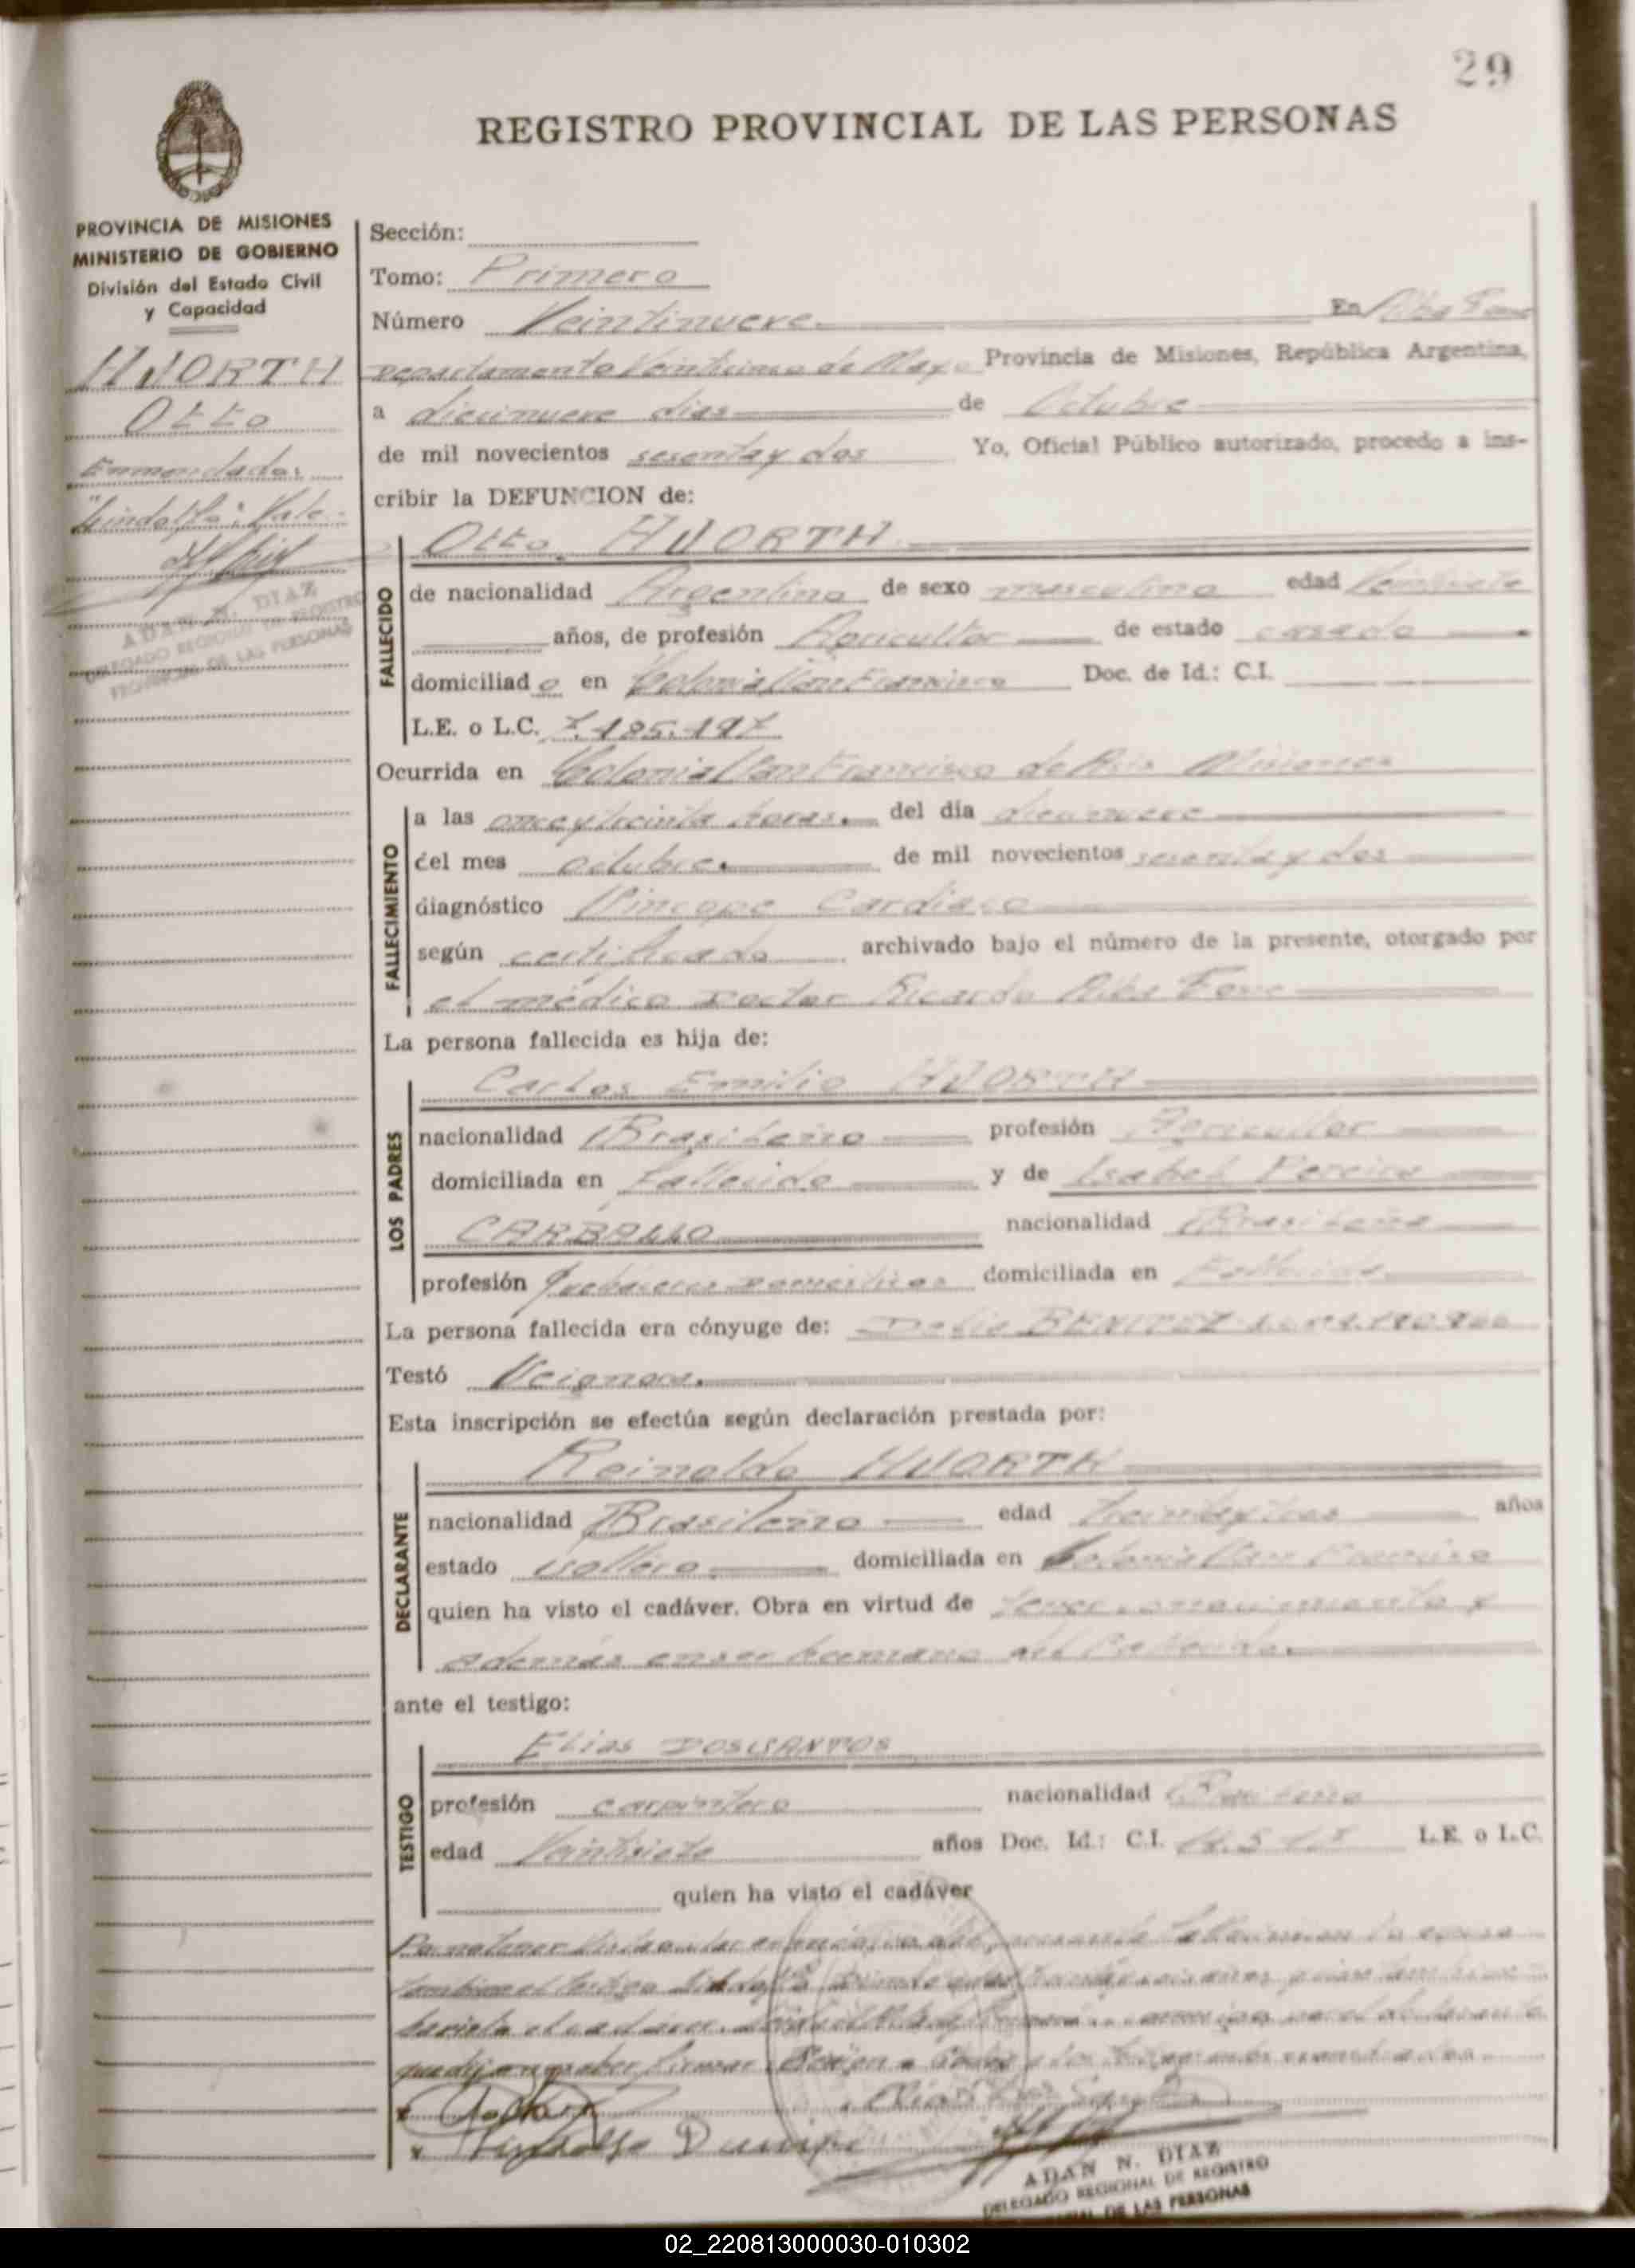 29
REGISTRO PROVINCIAL DE LAS PERSONAS
PROVINCIA DE MISIONES
MINISTERIO DE GOBIERNO
División del Estado Civil
y Capacidad
HJORTH
Otto
Enmendado:
"Lindolfo": Vale.-
ADAN N. DIAZ
DELEGADO REGIONAL DE REGISTRO
PROVINCIAL DE LAS PERSONAS
Sección:
Tomo: Primero
Número Veintinueve. En Alba Posse
Departamento Veinticinco de Mayo Provincia de Misiones, República Argentina,
a diecinueve dias de Octubre
de mil novecientos sesenta y dos Yo, Oficial Público autorizado, procedo a ins-
cribir la DEFUNCION de:
Otto HJORTH
FALLECIDO
de nacionalidad Argentina de sexo masculino edad Veintisiete
años, de profesión Agricultor de estado casado
domiciliado en Colonia San Francisco Doc. de Id.: C.I.
L.E. o L.C. 7.485.197
Ocurrida en Colonia San Francisco de Asis Misiones
FALLECIMIENTO
a las once y treinta horas. del día diecinueve
del mes octubre. de mil novecientos sesenta y dos
diagnóstico Sincope Cardiaco
según certificado archivado bajo el número de la presente, otorgado por
el médico Doctor Ricardo Alba Posse
La persona fallecida es hija de:
Carlos Emilio HJORTH
LOS PADRES
nacionalidad Brasileño profesión Agricultor
domiciliada en Fallecido y de Isabel Pereira
CARBALLO nacionalidad Brasileña
profesión Quehaceres Domesticos domiciliada en Fallecida
La persona fallecida era cónyuge de: Delia BENITEZ
Testó Se ignora.
Esta inscripción se efectúa según declaración prestada por:
Reinaldo HJORTH
DECLARANTE
nacionalidad Brasileño edad treinta y tres años
estado soltero domiciliada en Colonia San Francisco
quien ha visto el cadáver. Obra en virtud de tener conocimiento y
además en ser hermano del fallecido.
ante el testigo:
Elias DOS SANTOS
TESTIGO
profesión carpintero nacionalidad Brasileña
edad Veintisiete años Doc. Id.: C.I. L.E. o L.C.
quien ha visto el cadáver
también el testigo Lindolfo
ha visto el cadáver. por el declarante
que dijo no saber firmar
Elias Dos Santos
ADAN N. DIAZ
DELEGADO REGIONAL DE REGISTRO
DE LAS PERSONAS
02_220813000030-010302